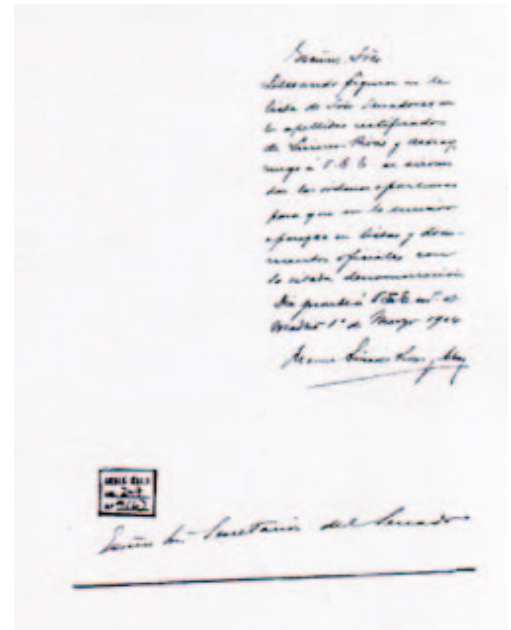 Excmo. Sr.
Deseando figurar en la
lista de Sres Senadores con
los apellidos rectificados
de Linares Rivas y Astray,
ruego á V. E. se sirva
dar las ordenes oportunas
para que en lo sucesivo
aparezca en listas y docu-
mentos oficiales con
la citada denominación
Dios guarde á V. E. m. a.
Madrid 1º de Marzo 1904
Linares Rivas y Astray
Excmo Sr. Secretario del Senado